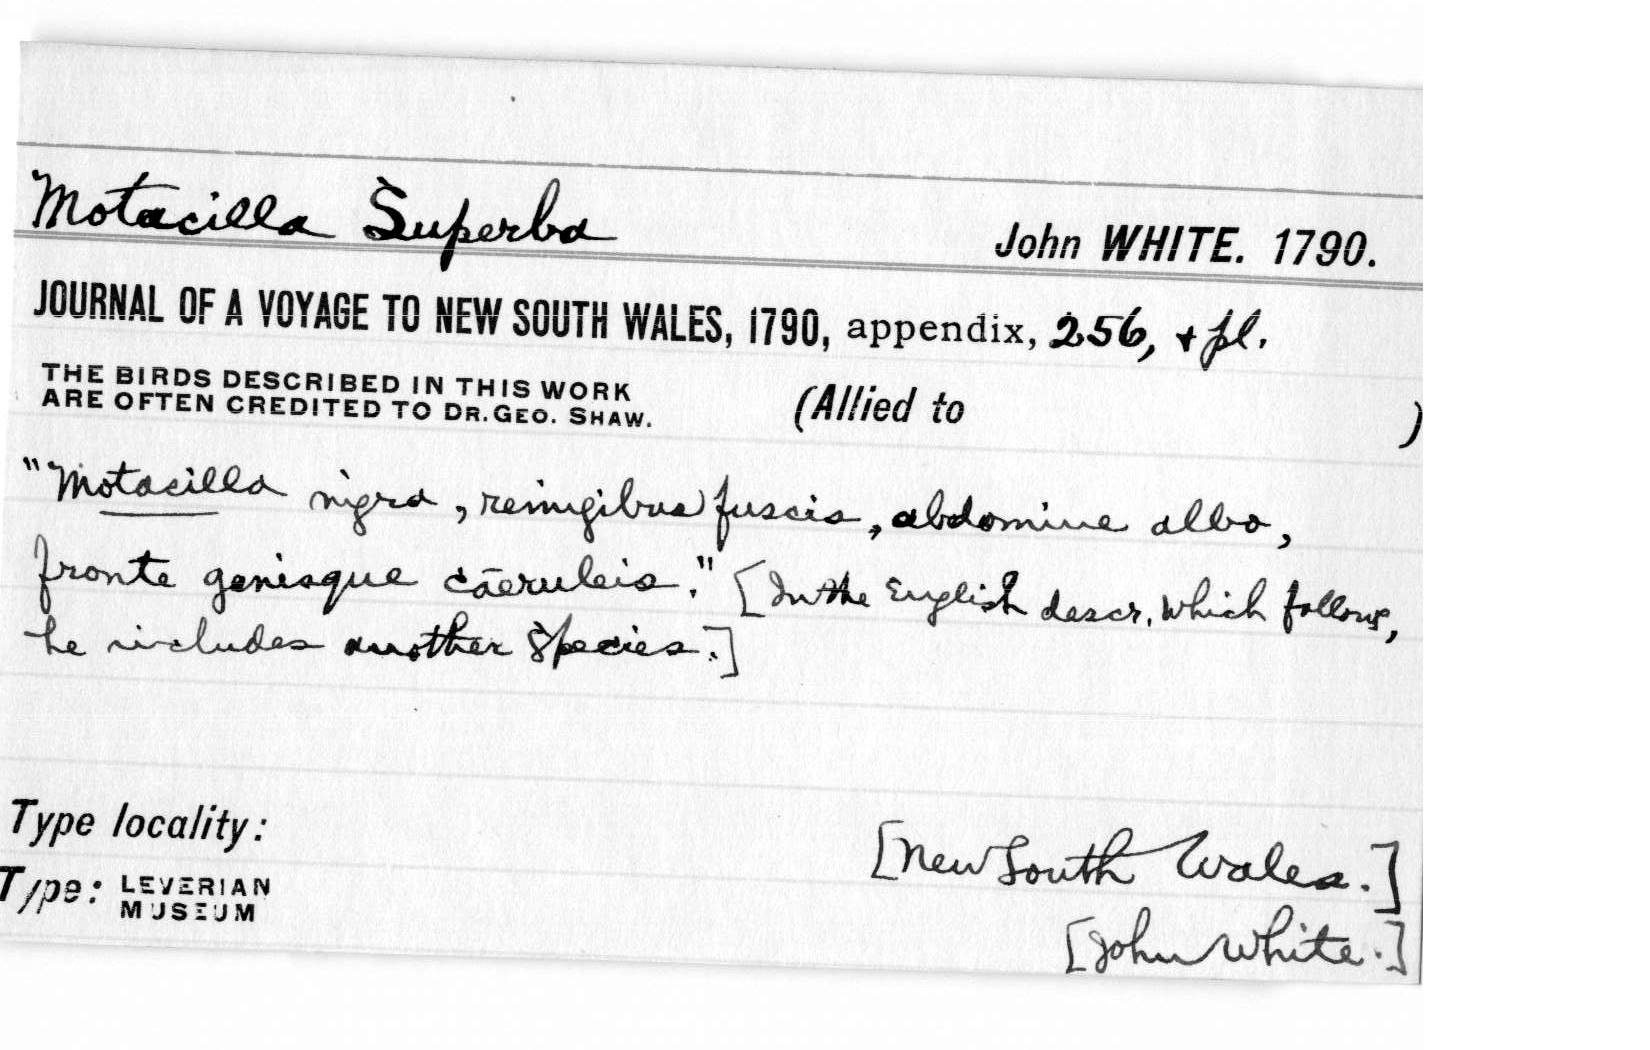 Motacilla Superba
John WHITE. 1790.
JOURNAL OF A VOYAGE TO NEW SOUTH WALES, 1790, appendix, 256, + pl.
THE BIRDS DESCRIBED IN THIS WORK
ARE OFTEN CREDITED TO DR. GEO. SHAW.
(Allied to )
"Motacilla nigra, remigibus fuscis, abdomine albo,
fronte genisque caeruleis." [In the English descr. which follows,
he includes another species.]
Type locality:
[New South Wales.]
Type: LEVERIAN
MUSEUM
[John White.]